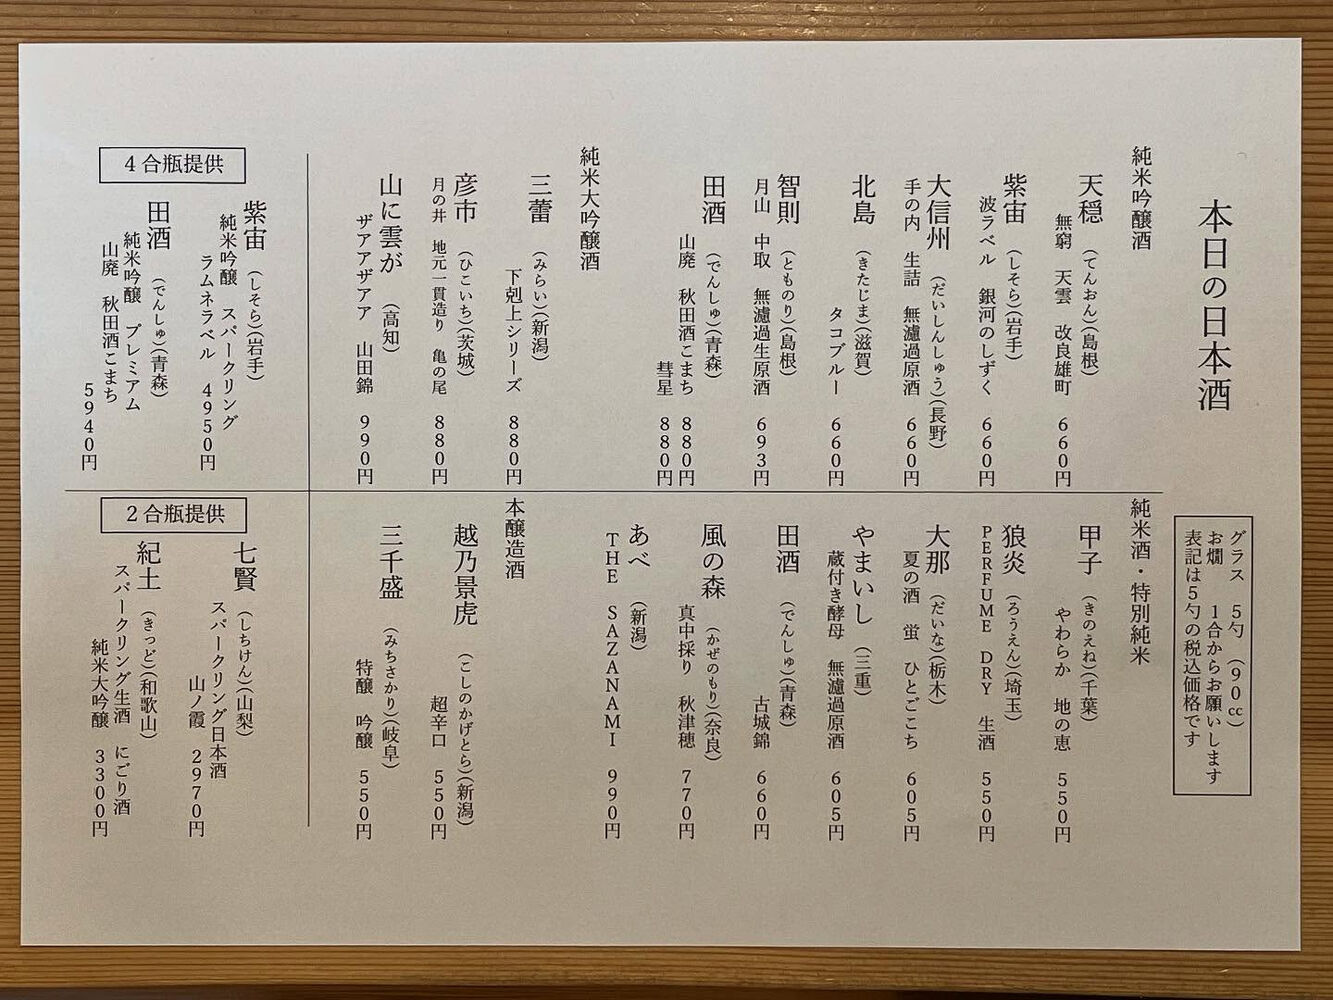 本日の日本酒
グラス　5勺　(90㏄)
お燗　1合からお願いします
表記は5勺の税込価格です
純米吟醸酒
天穏　(てんおん)(島根)
無窮　天雲　改良雄町　660円
紫宙　(しそら)(岩手)
波ラベル　銀河のしずく　660円
大信州　(だいしんしゅう)(長野)
手の内　生詰　無濾過原酒　660円
北島　(きたじま)(滋賀)
タコブルー　660円
智則　(とものり)(島根)
月山　中取　無濾過生原酒　693円
田酒　(でんしゅ)(青森)
山廃　秋田酒こまち　880円
彗星　880円
純米大吟醸酒
三蕾　(みらい)(新潟)
下剋上シリーズ　880円
彦市　(ひこいち)(茨城)
月の井　地元一貫造り　亀の尾　880円
山に雲が　(高知)
ザアアザアア　山田錦　990円
純米酒・特別純米
甲子　(きのえね)(千葉)
やわらか　地の恵　550円
狼炎　(ろうえん)(埼玉)
PERFUME　DRY　生酒　550円
大那　(だいな)(栃木)
夏の酒　蛍　ひとごこち　605円
やまいし　(三重)
蔵付き酵母　無濾過原酒　605円
田酒　(でんしゅ)(青森)
古城錦　660円
風の森　(かぜのもり)(奈良)
真中採り　秋津穂　770円
あべ　(新潟)
THE　SAZANAMI　990円
本醸造酒
越乃景虎　(こしのかげとら)(新潟)
超辛口　550円
三千盛　(みちさかり)(岐阜)
特醸　吟醸　550円
4合瓶提供
紫宙　(しそら)(岩手)
純米吟醸　スパークリング
ラムネラベル　4950円
田酒　(でんしゅ)(青森)
純米吟醸　プレミアム
山廃　秋田酒こまち
5940円
2合瓶提供
七賢　(しちけん)(山梨)
スパークリング日本酒
山ノ霞　2970円
紀土　(きっど)(和歌山)
スパークリング生酒　にごり酒
純米大吟醸　3300円